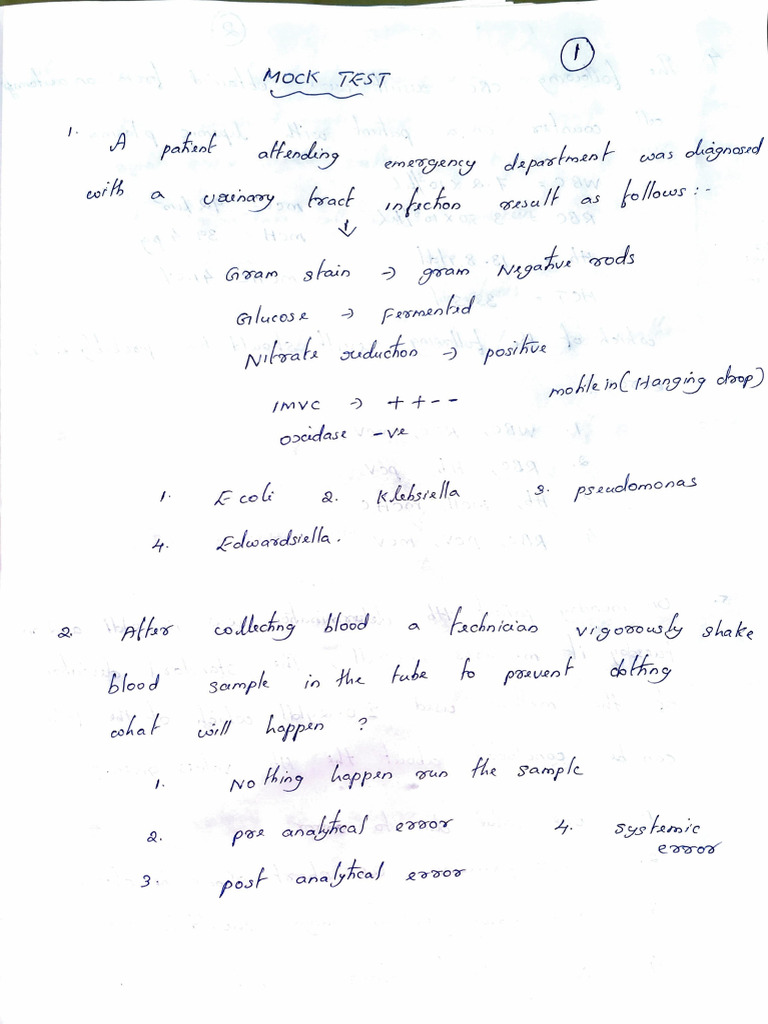 1
MOCK TEST
1. A patient attending emergency department was diagnosed
with a urinary tract infection result as follows:-
↓
Gram stain → gram Negative rods
Glucose → Fermented
Nitrate reduction → positive
motile in (Hanging drop)
IMVC → + + - -
oxidase -ve
1. E coli 2. Klebsiella 3. pseudomonas
4. Edwardsiella.
2. After collecting blood a technician vigorously shake
blood sample in the tube to prevent clotting
what will happen ?
1. Nothing happen run the sample
2. pre analytical error 4. systemic
error
3. post analytical error